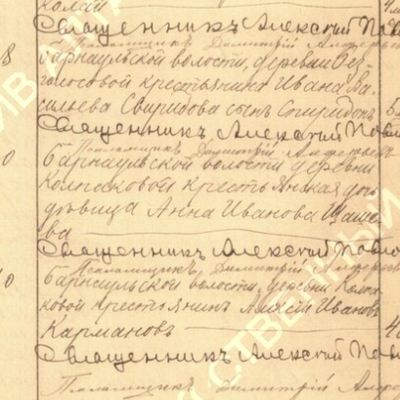 колай
Священникъ Алексій Пав
Псаломщикъ Димитрій
8 барнаульской волости, деревни
голосовой крестьянина Ивана Ва
сильева Свиридова сынъ Спиридонъ
Священникъ Алексій Пав
Псаломщикъ Димитрій
0 Барнаульской волости деревни
Колпаковой крестьянская дочь
дѣвица Анна Иванова
ва
Священникъ Алексій Павло
Псаломщикъ Димитрій
0 Барнаульской волости, деревни Колпа
ковой крестьянинъ Алексій Ивановъ
Кармановъ
Священникъ Алексій Пав
Псаломщикъ Димитрій